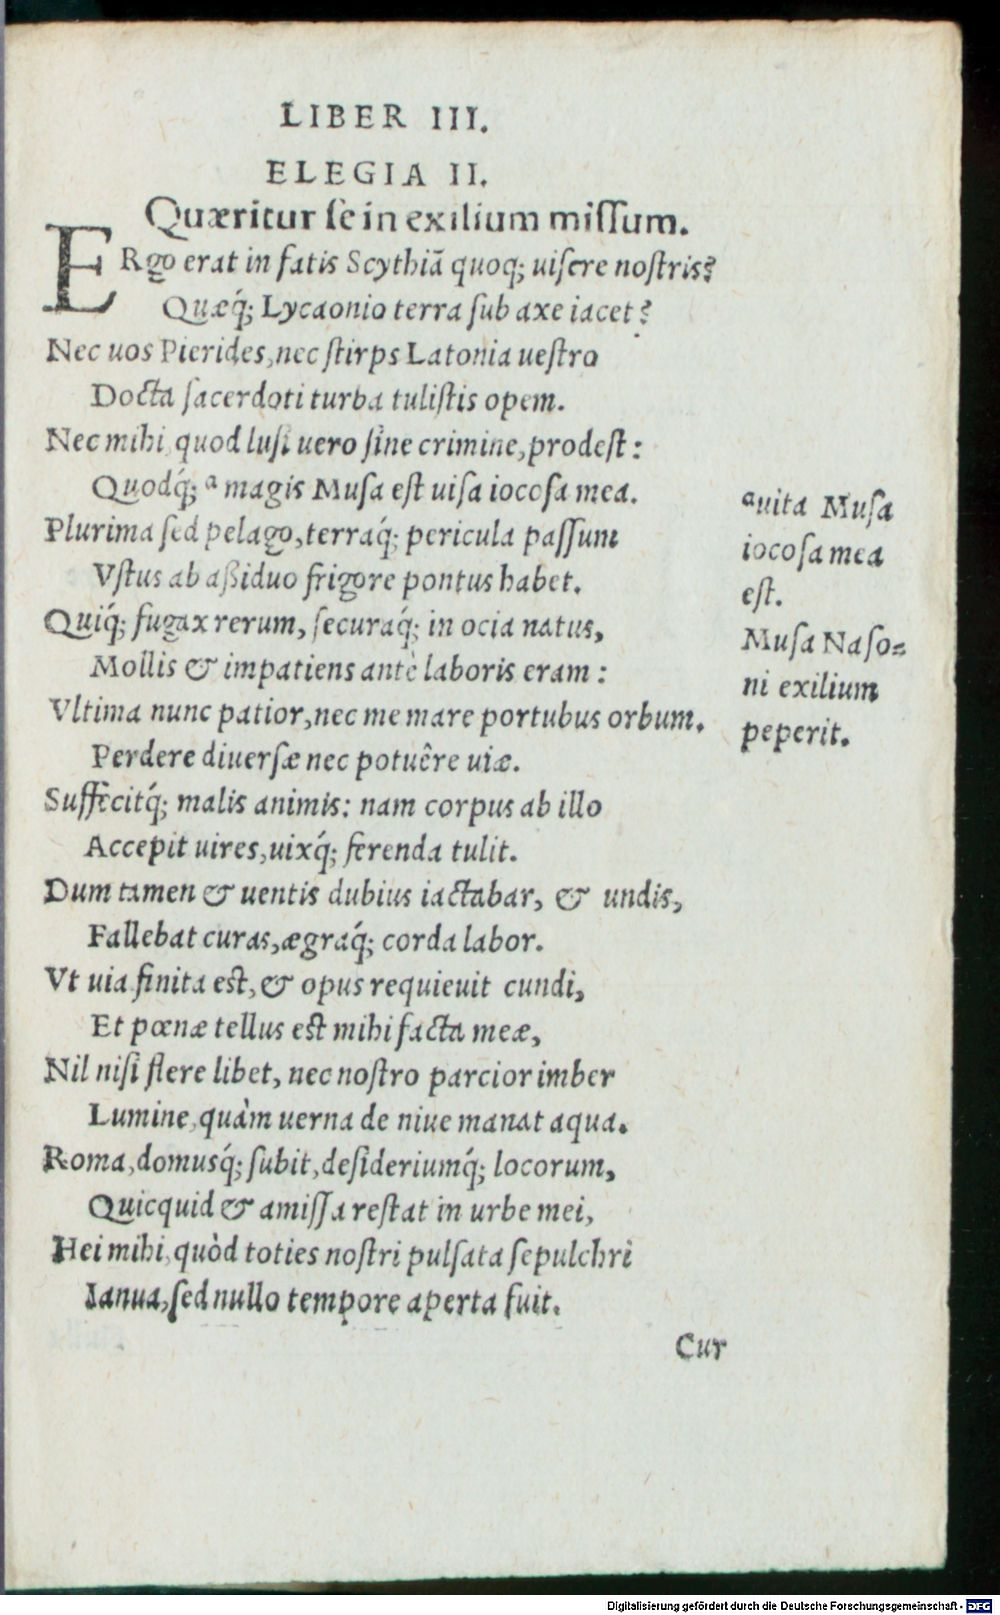 LIBER III.
ELEGIA II.
Quæritur se in exilium missum.
ERgo erat in fatis Scythiā quoq́; uisere nostris?
Quæq́; Lycaonio terra sub axe iacet?
Nec uos Pierides, nec stirps Latonia uestro
Docta sacerdoti turba tulistis opem.
Nec mihi, quod lusi uero sine crimine, prodest:
Quodq́; ᵃ magis Musa est uisa iocosa mea.
Plurima sed pelago, terraq́; pericula passum
Vstus ab aßiduo frigore pontus habet.
Quiq́; fugax rerum, securaq́; in ocia natus,
Mollis & impatiens antè laboris eram:
Vltima nunc patior, nec me mare portubus orbum.
Perdere diuersæ nec potuêre uiæ.
Suffecitq́; malis animis: nam corpus ab illo
Accepit uires, uixq́; ferenda tulit.
Dum tamen & uentis dubius iactabar, & undis,
Fallebat curas, ægraq́; corda labor.
Vt uia finita est, & opus requieuit eundi,
Et pœnæ tellus est mihi facta meæ,
Nil nisi flere libet, nec nostro parcior imber
Lumine, quàm uerna de niue manat aqua.
Roma, domusq́; subit, desideriumq́; locorum,
Quicquid & amissa restat in urbe mei,
Hei mihi, quòd toties nostri pulsata sepulchri
Ianua, sed nullo tempore aperta fuit.
Cur
ᵃuita Musa
iocosa mea
est.
Musa Naso=
ni exilium
peperit.
Digitalisierung gefördert durch die Deutsche Forschungsgemeinschaft - DFG